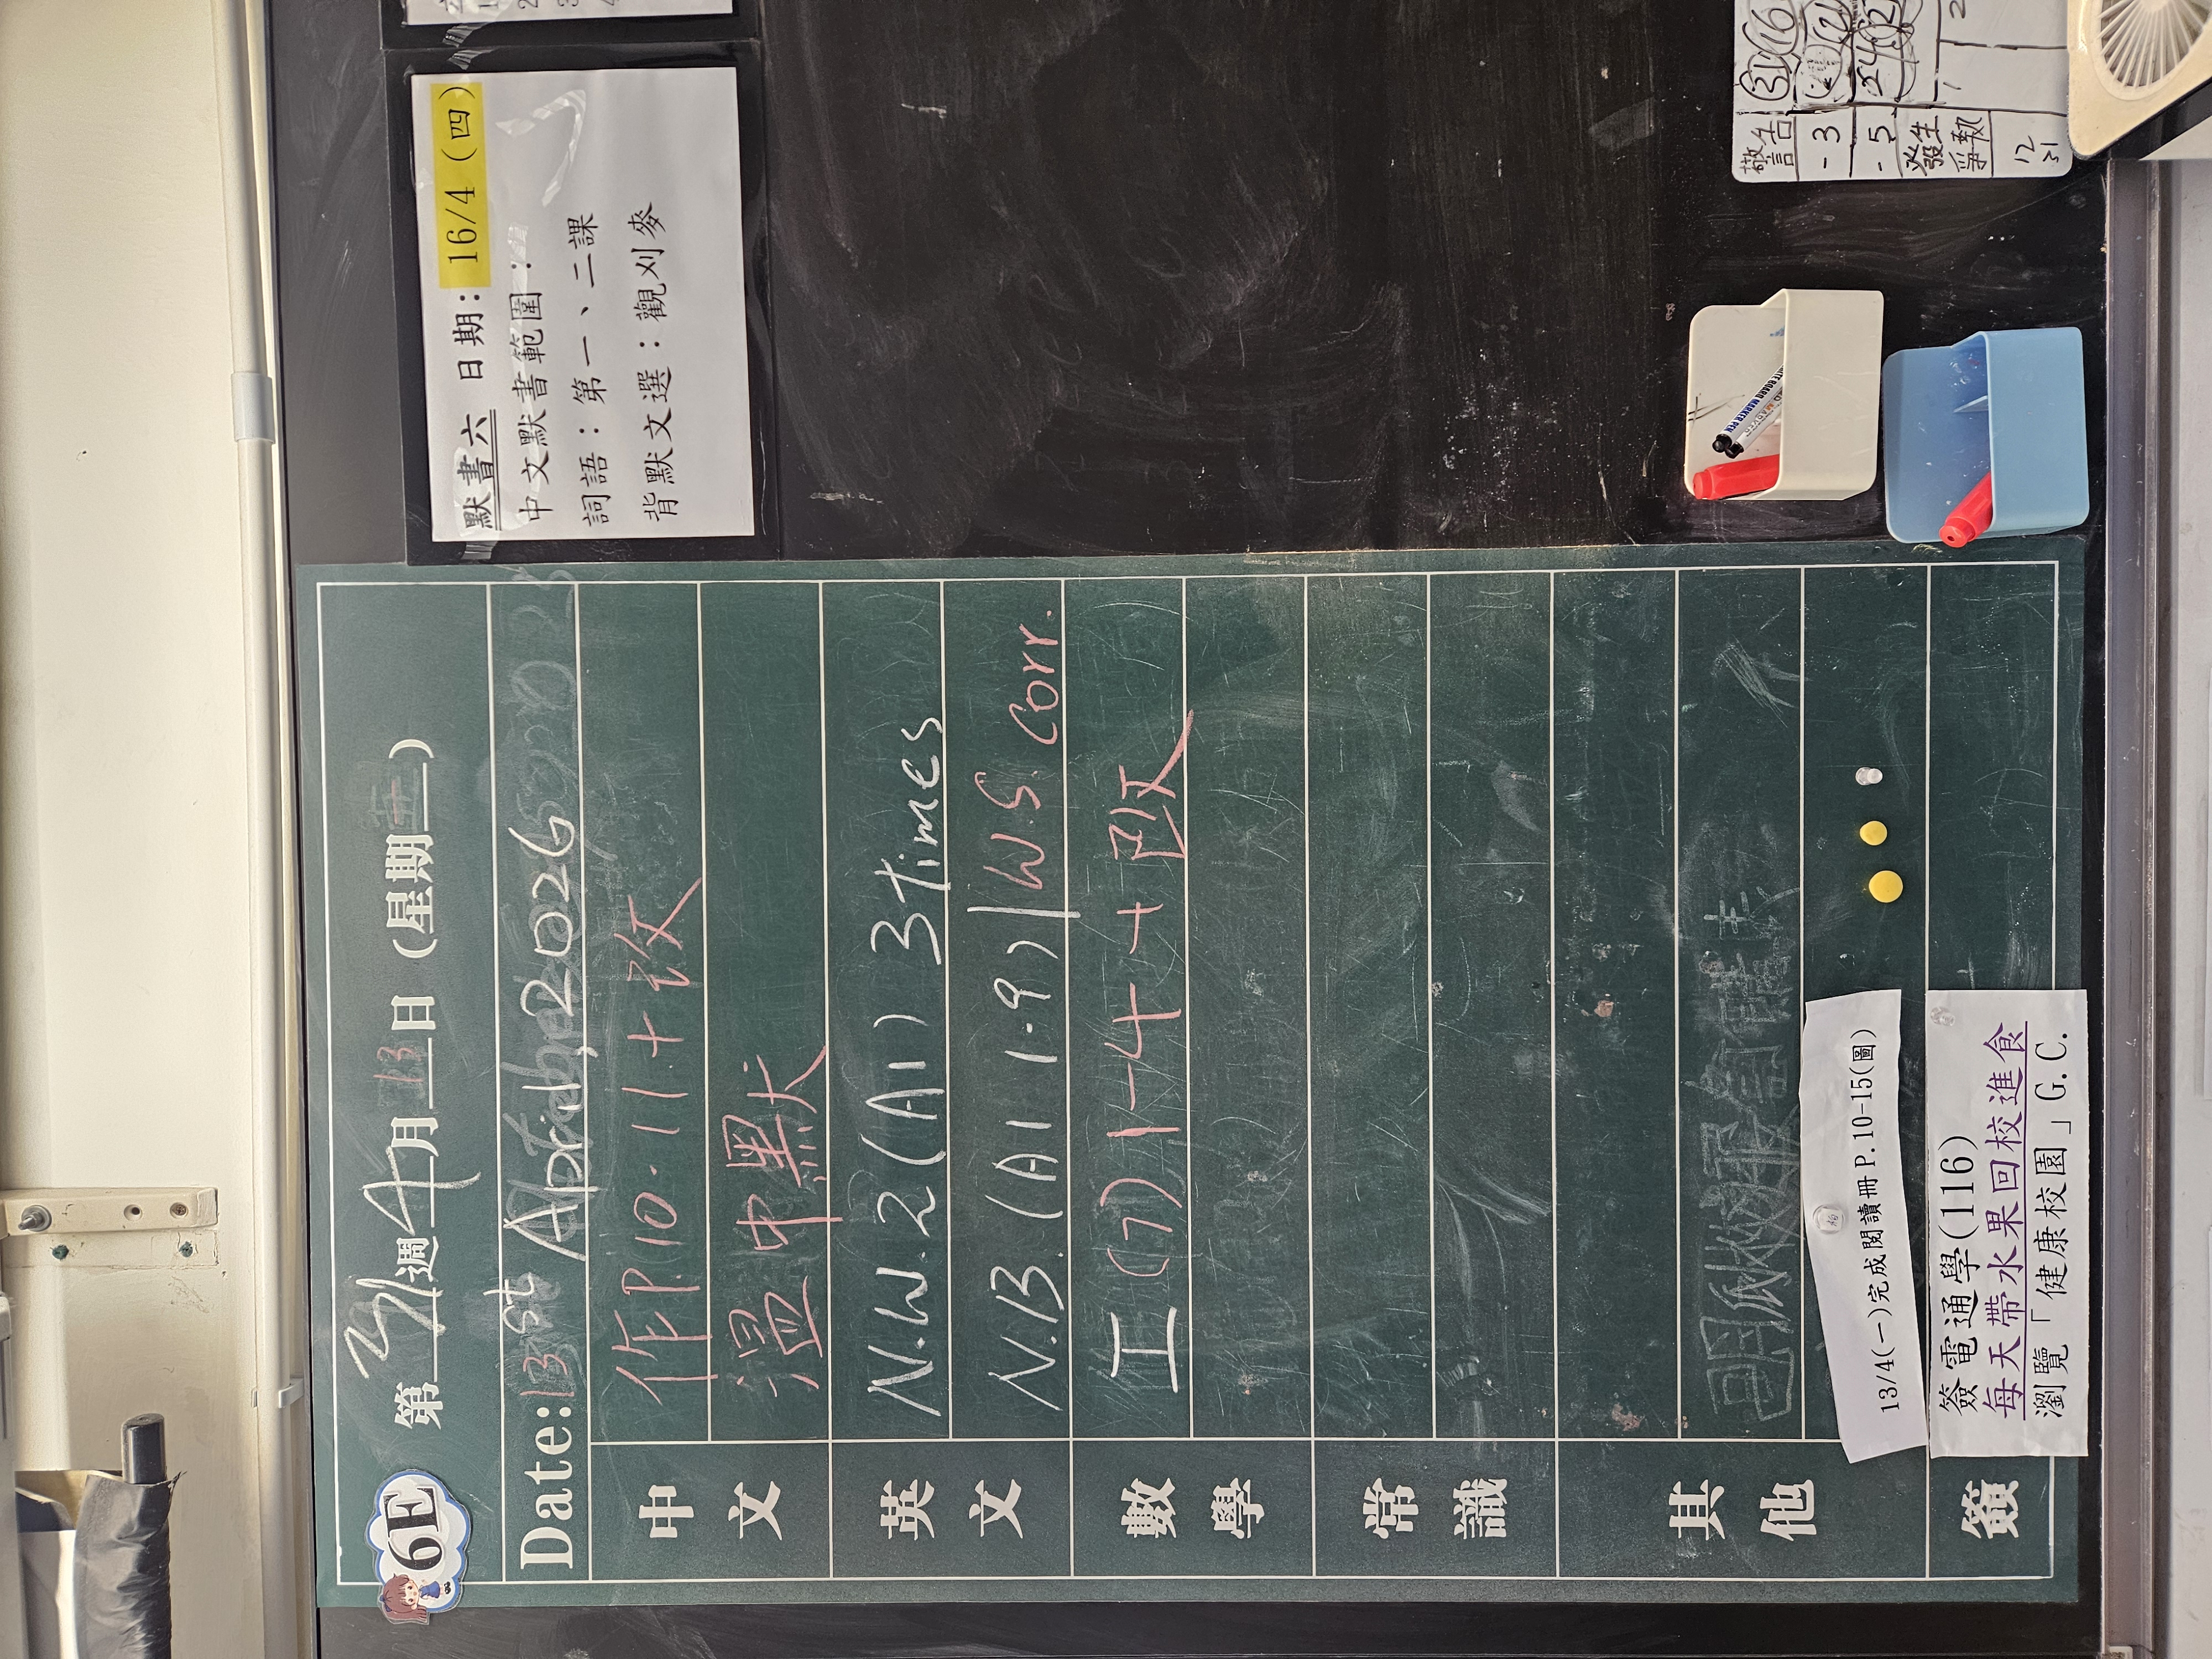 6E
第 週 4 月 13 日 (星期一)
Date: 13 st April, 2026
中文
作P.10-11+改
溫中默
英文
N.W.2 (A1) 3 times
N.B. (A1 1-9) | W.S. Corr.
數學
工(7) 1-4+改
常識
其他
13/4(一)完成閱讀冊P.10-15(圖)
簽
簽電通學(116)
每天帶水果回校進食
瀏覽「健康校園」G.C.
默書六 日期:16/4 (四)
中文默書範圍:
詞語:第一、二課
背默文選:觀刈麥
警告
-3
-5
發生
爭執
12
31
WHITE BOARD MARKER PEN